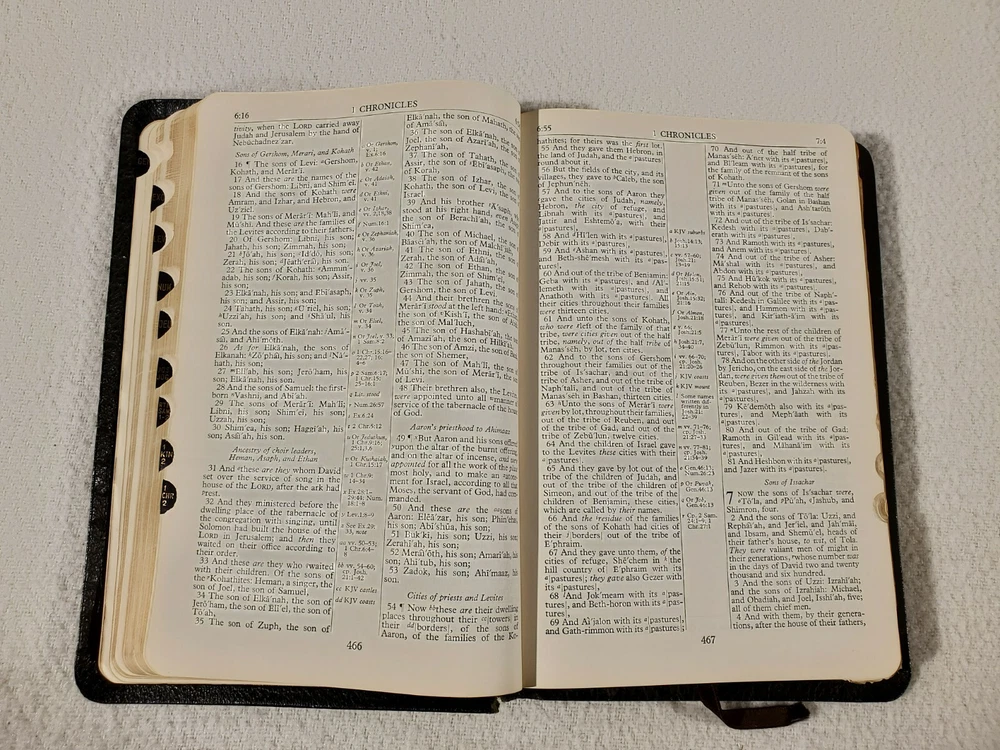 6:16
1 CHRONICLES
tivity, when the LORD carried away
Judah and Jerusalem by the hand of
Nebuchadnez´zar.
Sons of Gershom, Merari, and Kohath
16 ¶ The sons of Levi: Gershom,
Kohath, and Merâr´ī.
17 And these are the names of the
sons of Gershom: Libni, and Shim´eī.
18 And the sons of Kohath were
Amram, and Izhar, and Hebron, and
Uz´ziel.
19 The sons of Merâr´ī: Mah´lī, and
Mū´shī. And these are the families of
the Levites according to their fathers.
20 Of Gershom: Libni, his son;
Jahath, his son; Zimmah, his son;
21 Jō´ah, his son; Id´dō, his son;
Zerah, his son; Jēath´eraī, his son.
22 The sons of Kohath: Ammin´-
adab, his son; Korah, his son; Assir,
his son;
23 Elkā´nah, his son; and Ebī´asaph,
his son; and Assir, his son;
24 Tahath, his son; Ū´riel, his son;
Uzzī´ah, his son; and Shā´ul, his
son.
25 And the sons of Elkā´nah: Amā´-
saī, and Ahī´moth.
26 As for Elkā´nah, the sons of
Elkanah: Zō´phaī, his son; and Nā´-
hath, his son;
27 Elī´ab, his son; Jerō´ham, his
son; Elkā´nah, his son.
28 And the sons of Samuel: the first-
born Vashni, and Abī´ah.
29 The sons of Merâr´ī: Mah´lī;
Libni, his son; Shim´eī, his son;
Uzzah, his son;
30 Shim´ea, his son; Haggī´ah, his
son; Asāī´ah, his son.
Ancestry of choir leaders,
Heman, Asaph, and Ethan
31 And these are they whom David
set over the service of song in the
house of the LORD, after the ark had
rest.
32 And they ministered before the
dwelling place of the tabernacle of
the congregation with singing, until
Solomon had built the house of the
LORD in Jerusalem; and then they
waited on their office according to
their order.
33 And these are they who waited
with their children. Of the sons of
the Kohathites: Heman, a singer, the
son of Joel, the son of Samuel,
34 The son of Elkā´nah, the son of
Jerō´ham, the son of Elī´el, the son of
Tō´ah,
35 The son of Zuph, the son of
Elkā´nah, the son of Mahath, the son
of Amā´saī,
36 The son of Elkā´nah, the son of
Joel, the son of Azarī´ah, the son of
Zephanī´ah,
37 The son of Tahath, the son of
Assir, the son of Ebī´asaph, the son
of Korah,
38 The son of Izhar, the son of
Kohath, the son of Levi, the son of
Israel.
39 And his brother A´saph, who
stood at his right hand, even Asaph
the son of Berachī´ah, the son of
Shim´ea,
40 The son of Michael, the son of
Bāasēī´ah, the son of Malchī´ah,
41 The son of Ethni, the son of
Zerah, the son of Adāī´ah,
42 The son of Ethan, the son of
Zimmah, the son of Shim´eī,
43 The son of Jahath, the son of
Gershom, the son of Levi.
44 And their brethren, the sons of
Merâr´ī stood at the left hand: Ethan
the son of Kish´ī, the son of Abdi,
the son of Mal´luch,
45 The son of Hashabī´ah, the son
of Amazī´ah, the son of Hilkī´ah,
46 The son of Amzi, the son of Bani,
the son of Shemer,
47 The son of Mah´lī, the son of
Mū´shī, the son of Merâr´ī, the son
of Levi.
48 Their brethren also, the Levites,
were appointed unto all manner of
service of the tabernacle of the house
of God.
Aaron's priesthood to Ahimaaz
49 ¶ But Aaron and his sons offered
upon the altar of the burnt offering,
and on the altar of incense, and were
appointed for all the work of the place
most holy, and to make an atone-
ment for Israel, according to all that
Moses, the servant of God, had com-
manded.
50 And these are the sons of
Aaron: Elēā´zar, his son; Phin´ehas,
his son; Abī´shūa, his son;
51 Buk´ki, his son; Uzzi, his son;
Zerahī´ah, his son;
52 Merāī´oth, his son; Amarī´ah, his
son; Ahī´tub, his son;
53 Zadok, his son; Ahī´maaz, his
son.
Cities of priests and Levites
54 ¶ Now these are their dwelling
places throughout their towers in
their borders, of the sons of
Aaron, of the families of the Ko-
466
6:55
1 CHRONICLES
7:4
hathites; for theirs was the first lot.
55 And they gave them Hebron, in
the land of Judah, and the pastures
round about it.
56 But the fields of the city, and its
villages, they gave to Caleb, the son
of Jephun´neh.
57 And to the sons of Aaron they
gave the cities of Judah, namely,
Hebron, the city of refuge, and
Libnah with its pastures, and
Jattir and Eshtemō´a, with their
pastures,
58 And Hī´len with its pastures,
Debir with its pastures,
59 And Ashan with its pastures,
and Beth-shē´mesh with its
pastures.
60 And out of the tribe of Benjamin:
Geba with its pastures, and Al´-
lemeth with its pastures, and
Anathoth with its pastures. All
their cities throughout their families
were thirteen cities.
61 And unto the sons of Kohath,
who were left of the family of that
tribe, were cities given out of the half
tribe, namely, out of the half tribe of
Manas´seh, by lot, ten cities.
62 And to the sons of Gershom
throughout their families out of the
tribe of Is´sachar and out of the
tribe of Asher, and out of the tribe of
Naph´talī, and out of the tribe of
Manas´seh in Bashan, thirteen cities.
63 Unto the sons of Merâr´ī were
given by lot, throughout their families,
out of the tribe of Reuben, and out
of the tribe of Gad, and out of the
tribe of Zebū´lun, twelve cities.
64 And the children of Israel gave
to the Levites these cities with their
pastures.
65 And they gave by lot out of the
tribe of the children of Judah, and
out of the tribe of the children of
Simeon, and out of the tribe of the
children of Benjamin, these cities,
which are called by their names.
66 And the residue of the families
of the sons of Kohath had cities of
their borders out of the tribe of
E´phraim.
67 And they gave unto them, of the
cities of refuge, Shē´chem in the
hill country of E´phraim with its
pastures; they gave also Gezer with
its pastures,
68 And Jok´meam with its pas-
tures, and Beth-horon with its pas-
tures,
69 And Aī´jalon with its pastures,
and Gath-rimmon with its pastures;
70 And out of the half tribe of
Manas´seh: A´ner with its pastures,
and Bi´leam with its pastures, for
the family of the remnant of the sons
of Kohath.
71 Unto the sons of Gershom were
given out of the family of the half
tribe of Manas´seh, Golan in Bashan
with its pastures, and Ash´taroth
with its pastures;
72 And out of the tribe of Is´sachar:
Kedesh with its pastures, Dab´-
erath with its pastures,
73 And Ramoth with its pastures,
and Anem´ with its pastures;
74 And out of the tribe of Asher:
Mā´shal with its pastures, and
Abdon with its pastures,
75 And Hū´kok with its pastures,
and Rehob with its pastures;
76 And out of the tribe of Naph´-
talī: Kedesh in Galilee with its pas-
tures, and Hammon with its pas-
tures, and Kir´iath-ā´im with its
pastures.
77 Unto the rest of the children of
Merâr´ī were given out of the tribe of
Zebū´lun, Rimmon with its pas-
tures, Tabor with its pastures;
78 And on the other side of the Jor-
dan by Jericho, on the east side of the Jor-
dan, were given them out of the tribe of
Reuben, Bezer in the wilderness with
its pastures, and Jahzah with its
pastures,
79 Kē´demōth also with its pas-
tures, and Meph´āath with its
pastures;
80 And out of the tribe of Gad:
Ramoth in Gil´ead with its pas-
tures, and Māhanā´im with its
pastures,
81 And Heshbon with its pastures,
and Jazer with its pastures.
Sons of Issachar
7 NOW the sons of Is´sachar were,
Tō´la, and Pū´ah, Jashub, and
Shimron, four.
2 And the sons of Tō´la: Uzzi, and
Rephāī´ah, and Jer´iel, and Jah´māī,
and Jibsam, and Shemū´el, heads of
their father's house, to wit, of Tola.
They were valiant men of might in
their generations, whose number was
in the days of David two and twenty
thousand and six hundred.
3 And the sons of Uzzi: Izrahī´ah;
and the sons of Izrahiah: Michael,
and Obadiah, and Joel, Isshī´ah, five;
all of them chief men.
4 And with them, by their genera-
tions, after the house of their fathers,
467